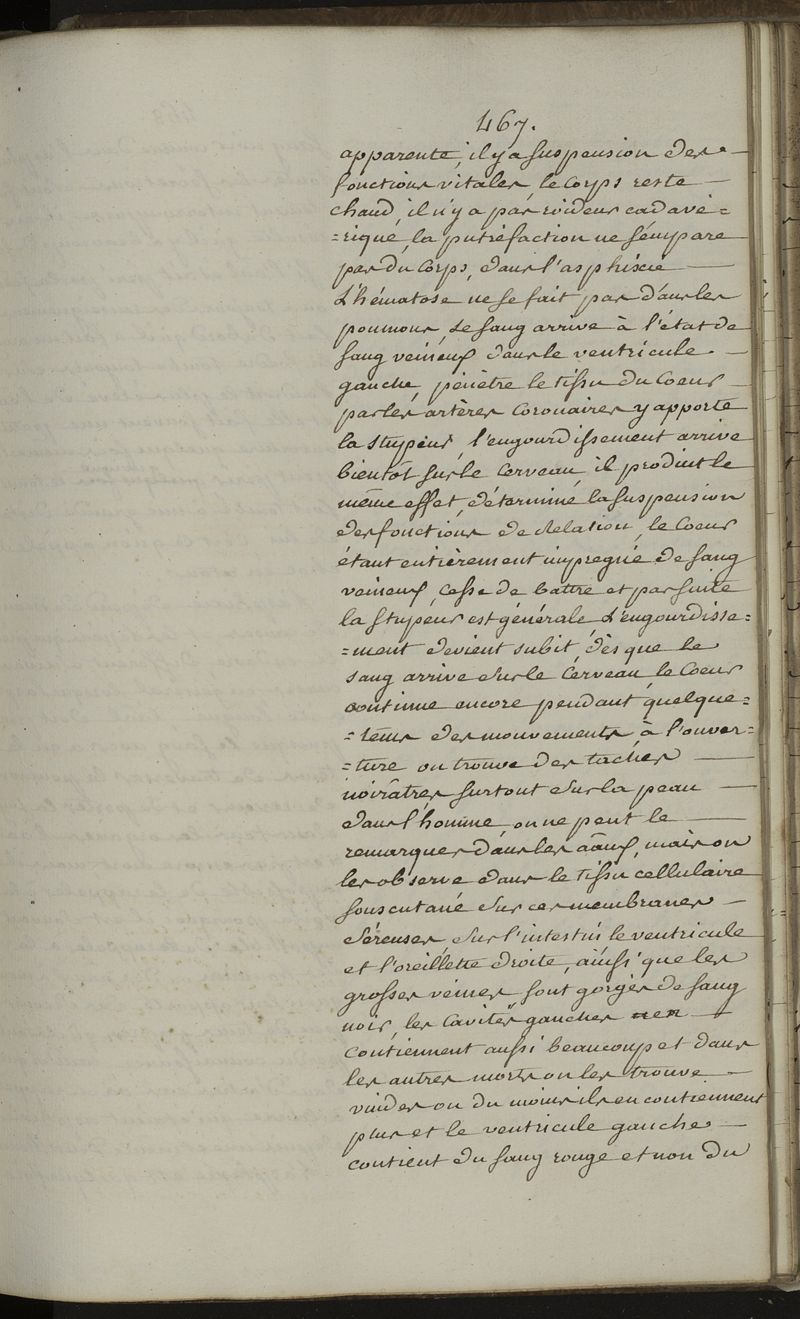 467.
apparente, il y a suspension des —
fonctions vitales, le corps reste —
chaud, il n'y a pas roideur cadavé=
=rique, la putréfaction ne s'empare
pas du corps, dans l'asphixie —
L'hématose ne se fait pas dans les
poumons, Le sang arrive à l'état de
sang veineux dans le ventricule —
gauche, pénètre le tissu du Coeur —
par les artères Coronaires y apporte
la stupeur, l'engourdissement arrive
bientôt sur le Cerveau, il produit le
même effet, détermine la suspension
des fonctions de Relation, le Coeur
étant entièrement impregné de sang
veineux, cesse de battre et par suite
la stupeur est générale, L'engourdisse=
=ment devient subit, dès que le
sang arrive sur le Cerveau, le Coeur
continue encore pendant quelque=
=tems des mouvements, à l'ouver=
=ture on trouve des taches —
noirâtres surtout sur la peau —
dans l'homme, on ne peut le —
remarquer dans les aâux, mais on
les observe dans le tissu cellulaire
sous cutané sur ces membranes —
séreuses, sur l'intestin le ventricule
et l'oreillette droite, ainsi que les
grosses veines sont gorgés de sang
noir, les Cavités gauches —
contiennent aussi beaucoup et dans
les autres morts on les trouve —
vuides ou du moins ils en contiennent
plus et le ventricule gauche —
contient du sang rouge et non du